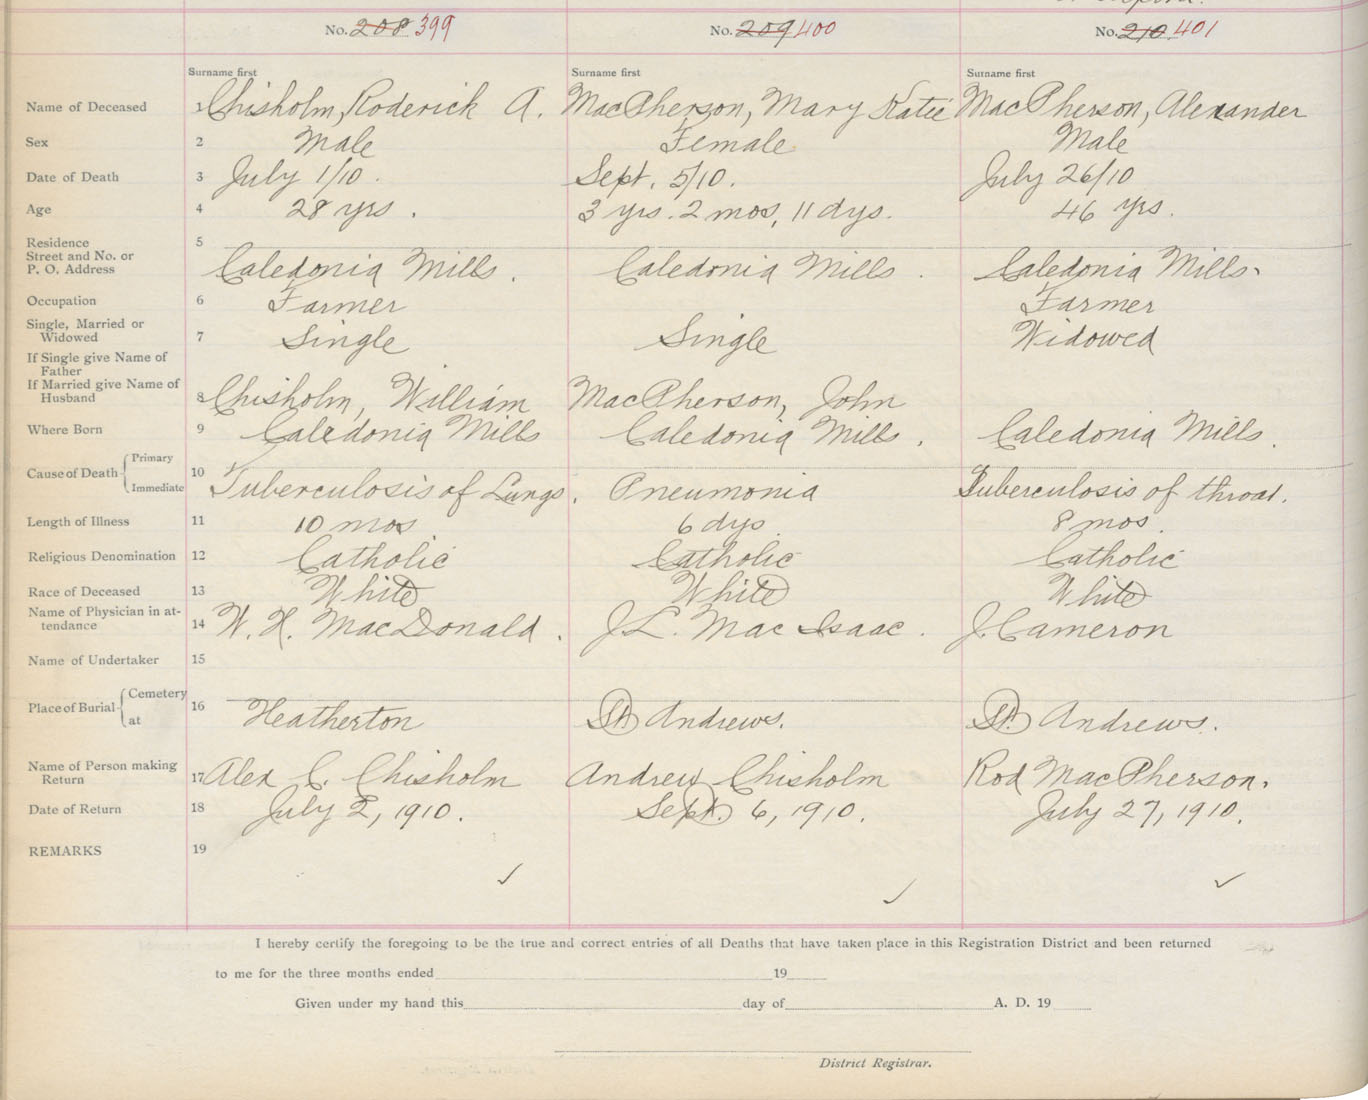 No. 208 399 No. 209 400 No. 210 401
Surname first Surname first Surname first
Name of Deceased 1 Chisholm, Roderick A. MacPherson, Mary Katie MacPherson, Alexander
Sex 2 Male Female Male
Date of Death 3 July 1/10. Sept. 5/10. July 26/10
Age 4 28 yrs. 3 yrs. 2 mos, 11 dys. 46 yrs.
Residence 5
Street and No. or
P. O. Address Caledonia Mills. Caledonia Mills. Caledonia Mills.
Occupation 6 Farmer Farmer
Single, Married or
Widowed 7 Single Single Widowed
If Single give Name of
Father
If Married give Name of
Husband 8 Chisholm, William MacPherson, John
Where Born 9 Caledonia Mills Caledonia Mills. Caledonia Mills.
Cause of Death Primary 10
Immediate Tuberculosis of Lungs. Pneumonia Tuberculosis of throat.
Length of Illness 11 10 mos 6 dys 8 mos.
Religious Denomination 12 Catholic Catholic Catholic
Race of Deceased 13 White White White
Name of Physician in at-
tendance 14 W. H. MacDonald. J. L. MacIsaac. J. Cameron
Name of Undertaker 15
Place of Burial Cemetery 16
at Heatherton St. Andrews. St. Andrews.
Name of Person making
Return 17 Alex C. Chisholm Andrew Chisholm Rod MacPherson.
Date of Return 18 July 2, 1910. Sept. 6, 1910. July 27, 1910.
REMARKS 19
I hereby certify the foregoing to be the true and correct entries of all Deaths that have taken place in this Registration District and been returned
to me for the three months ended 19
Given under my hand this day of A. D. 19
District Registrar.